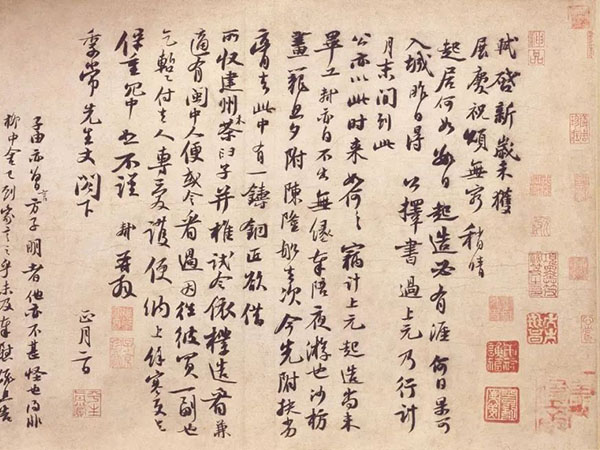 軾啓新歲未獲
展慶祝頌無窮稍晴
起居何如數日起造必有涯何日果可
入城昨日得公擇書過上元乃行計
月末間到此
公亦以此時来如何々竊計上元起造尚未
畢工軾亦自不出無緣奉陪夜游也沙枋
畫籠旦夕附陳隆舩去次今先附扶劣
膏去此中有一鑄銅匠欲借
所收建州木茶臼子并椎試令依樣造看兼
適有閩中人便或令看過因往彼買一副也
乞暫付去人專愛護便納上餘寒更乞
保重冗中恕不謹軾再拜
季常先生丈閤下
正月二日
子由亦曾言方子明者他亦不甚怪也得非
柳中舍已到家言之乎未及奉慰疏且告